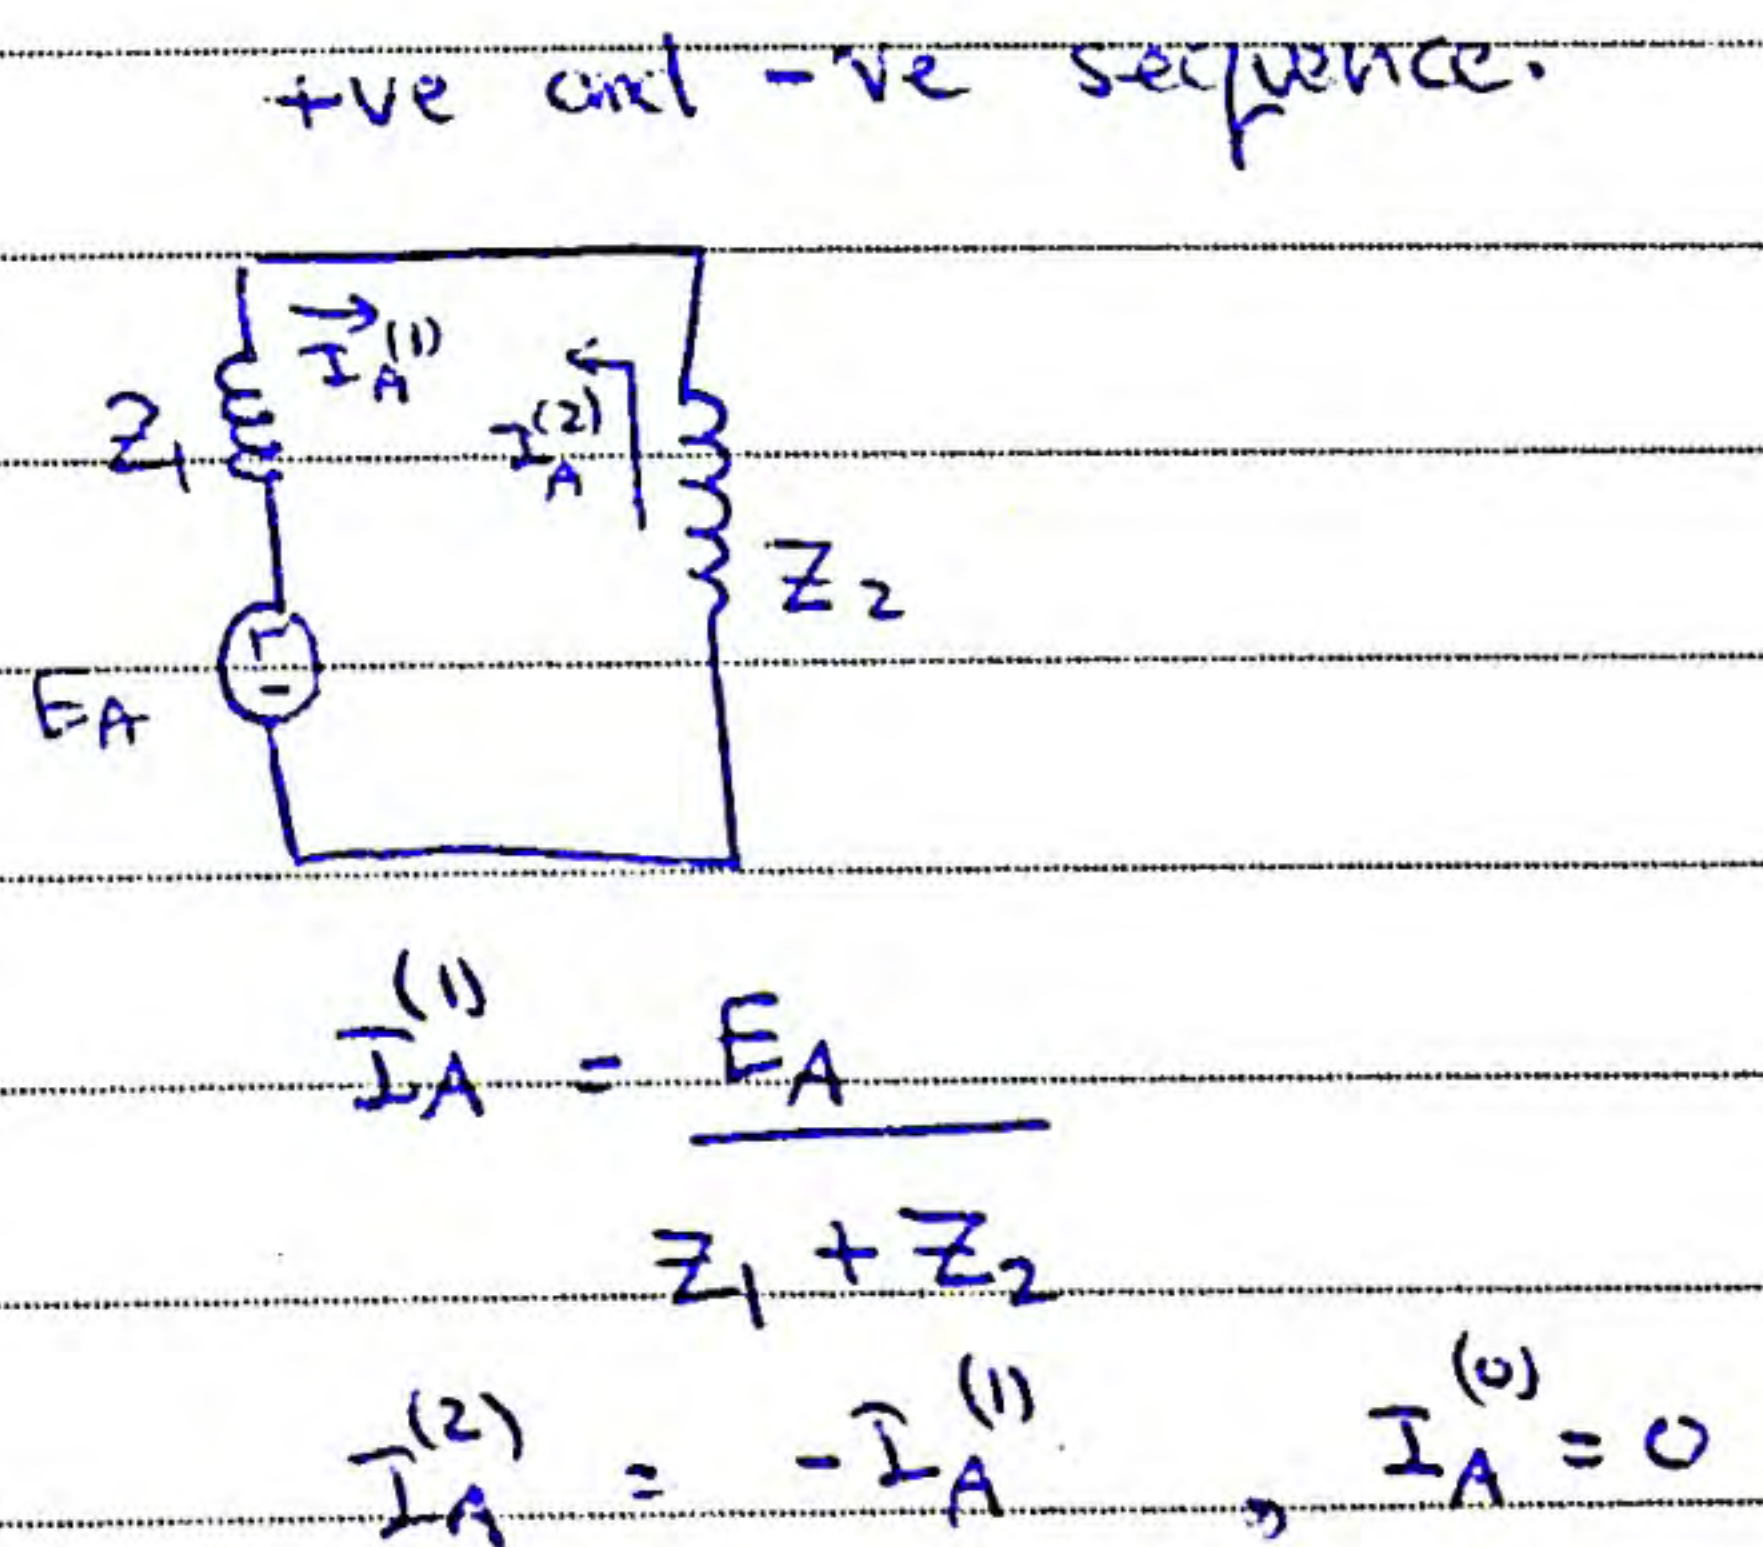 +ve and -ve sequence.
I_A^(1)
Z_1
I_A^(2)
Z_2
+
-
E_A
I_A^(1) = E_A
Z_1 + Z_2
I_A^(2) = -I_A^(1) , I_A^(0) = 0